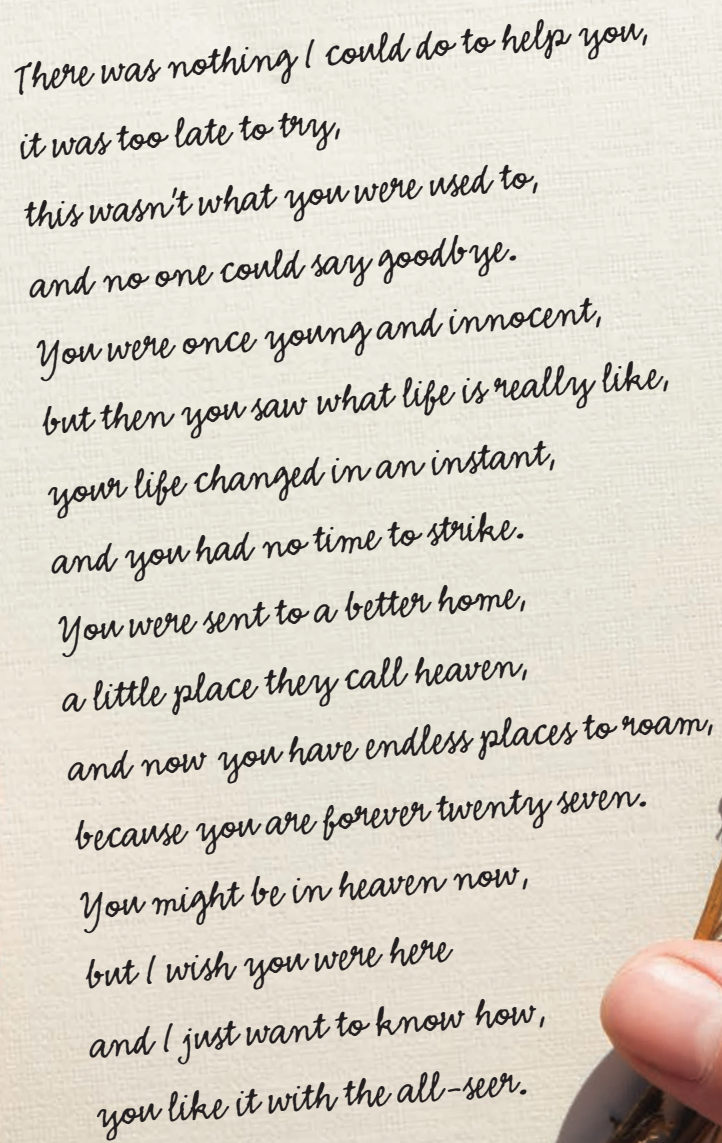 There was nothing I could do to help you,
it was too late to try,
this wasn't what you were used to,
and no one could say goodbye.
You were once young and innocent,
but then you saw what life is really like,
your life changed in an instant,
and you had no time to strike.
You were sent to a better home,
a little place they call heaven,
and now you have endless places to roam,
because you are forever twenty seven.
You might be in heaven now,
but I wish you were here
and I just want to know how,
you like it with the all-seer.